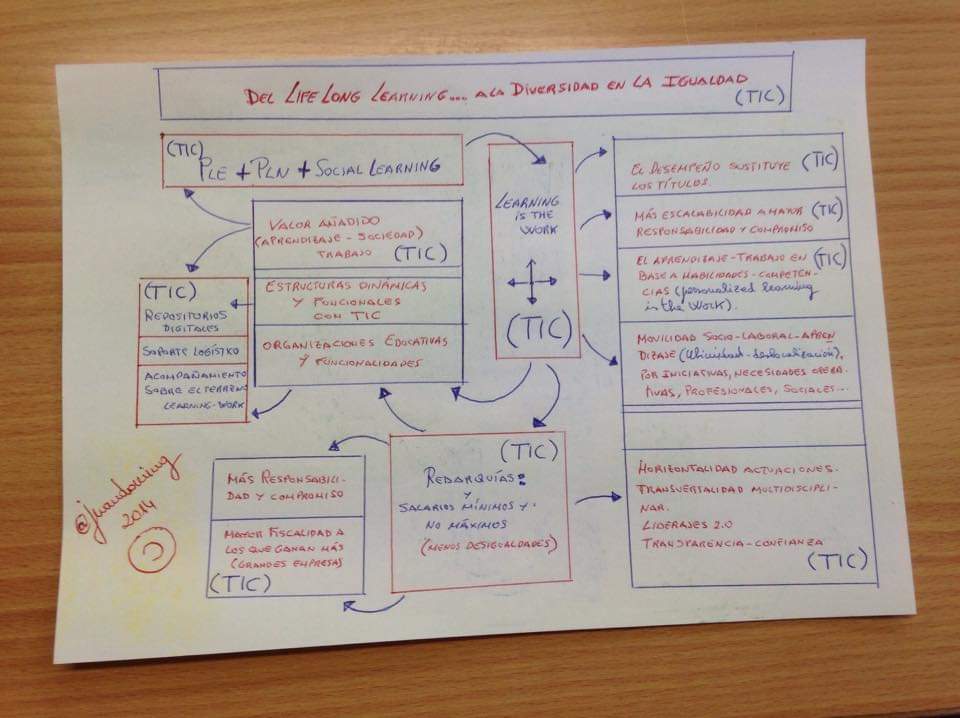 DEL LIFE LONG LEARNING.... A LA DIVERSIDAD EN LA IGUALDAD
(TIC)
(TIC)
PLE + PLN + SOCIAL LEARNING
VALOR AÑADIDO
(APRENDIZAJE - SOCIEDAD)
TRABAJO (TIC)
ESTRUCTURAS DINÁMICAS
Y FUNCIONALES
CON TIC
ORGANIZACIONES EDUCATIVAS
Y FUNCIONALIDADES
(TIC)
REPOSITORIOS
DIGITALES
SOPORTE LOGÍSTICO
ACOMPAÑAMIENTO
SOBRE EL TERRENO
LEARNING-WORK
LEARNING
IS THE
WORK
(TIC)
EL DESEMPEÑO SUSTITUYE (TIC)
LOS TÍTULOS.
MÁS ESCALABILIDAD A MAYOR (TIC)
RESPONSABILIDAD Y COMPROMISO
EL APRENDIZAJE-TRABAJO EN (TIC)
BASE A HABILIDADES-COMPETEN-
CIAS (personalized learning
is the work).
MOVILIDAD SOCIO-LABORAL-APREN
DIZAJE (Ubicuidad-deslocalización),
POR INICIATIVAS, NECESIDADES OPERA
TIVAS, PROFESIONALES, SOCIALES...
HORIZONTALIDAD ACTUACIONES.
TRANSVERTALIDAD MULTIDISCIPLI-
NAR.
LIDERAJES 2.0
TRANSPARENCIA-CONFIANZA
(TIC)
(TIC)
REDARQUÍAS:
Y
SALARIOS MÍNIMOS Y.
NO MÁXIMOS
(MENOS DESIGUALDADES)
MÁS RESPONSABILI-
DAD Y COMPROMISO
MAYOR FISCALIDAD A
LOS QUE GANAN MÁS
(GRANDES EMPRESAS)
(TIC)
@juandoming
2014